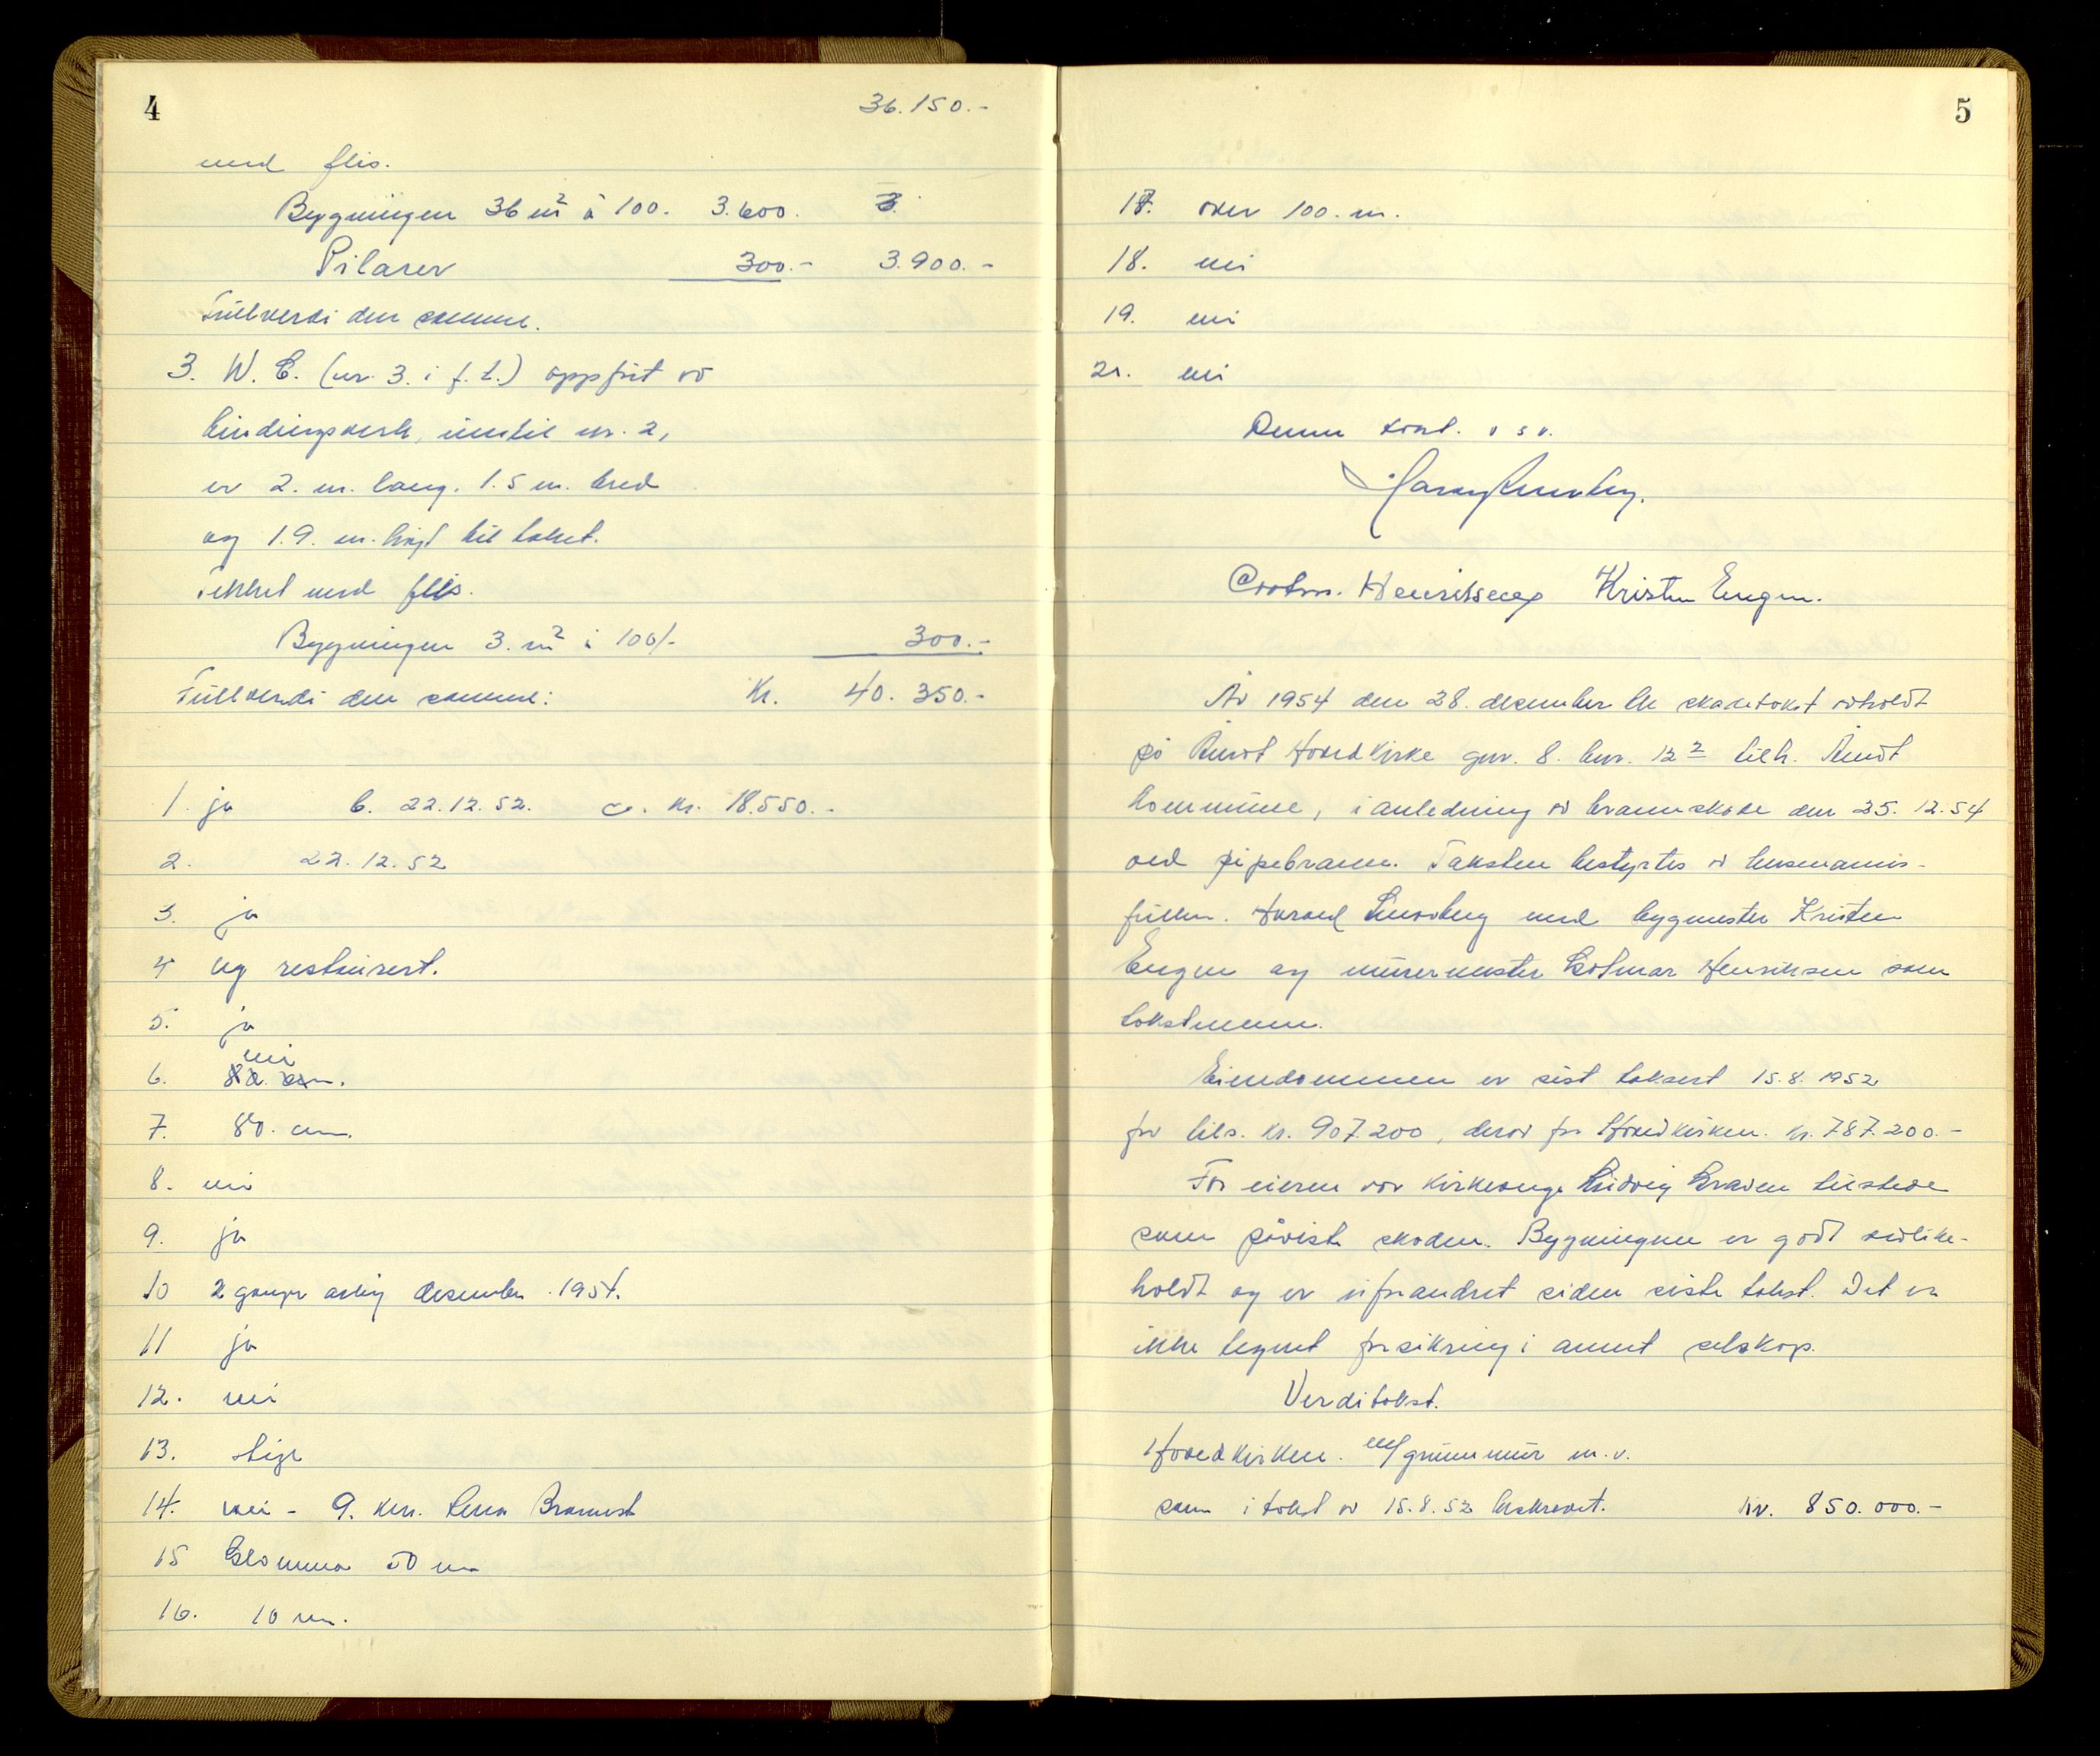 4
36.150.-
med flis.
Bygningen 36 m² à 100. 3.600.
Pilarer 300.- 3.900.-
Fullverdi den samme.
3. W.C. (nr. 3. i f.t.) oppført av
bindingsverk, inntil nr. 2,
er 2. m. lang. 1.5 m. bred
og 1.9. m. høyt til taket.
Tekket med flis.
Bygningen 3. m² à 100/- 300.-
Fullverdi den samme: Kr. 40.350.-
1. ja b. 22.12.52. c. kr. 18.550.-
2. 22.12.52
3. ja
4 og restaurert.
5. ja
nei
6. 80. cm.
7. 80. cm.
8. nei
9. ja
10 2 ganger årlig desember 1954.
11 ja
12. nei
13. stige
14. nei - 9. km. Rena Brannst
15 Glomma 50 m
16. 10 m.
5
17. over 100. m.
18. nei
19. nei
21. nei
Denne takst. o s v.
Cotm. Henriksen Kristen Engen.
År 1954 den 28. desember ble skadetakst avholdt
på Åmot Hovedkirke gnr. 8. bnr. 12² tilh. Åmot
kommune, i anledning av brannskade den 25.12.54
ved pipebrann. Taksten bestyrtes av lensmanns-
fullm. Harald Lundberg med bygmester Kristen
Engen og murermester Cotmar Henriksen som
takstmenn.
Eiendommen er sist taksert 15.8.1952
for tils. kr. 907.200, derav for Hovedkirken. kr. 787.200.-
For eieren var kirkeverge Ludvig Graven tilstede
som påviste skaden. Bygningen er godt vedlike-
holdt og er uforandret siden siste takst. Det er
ikke tegnet forsikring i annet selskap.
Verditakst.
Hovedkirken. m/grunnmur m.v.
som i takst av 15.8.52 beskrevet. kr. 850.000.-